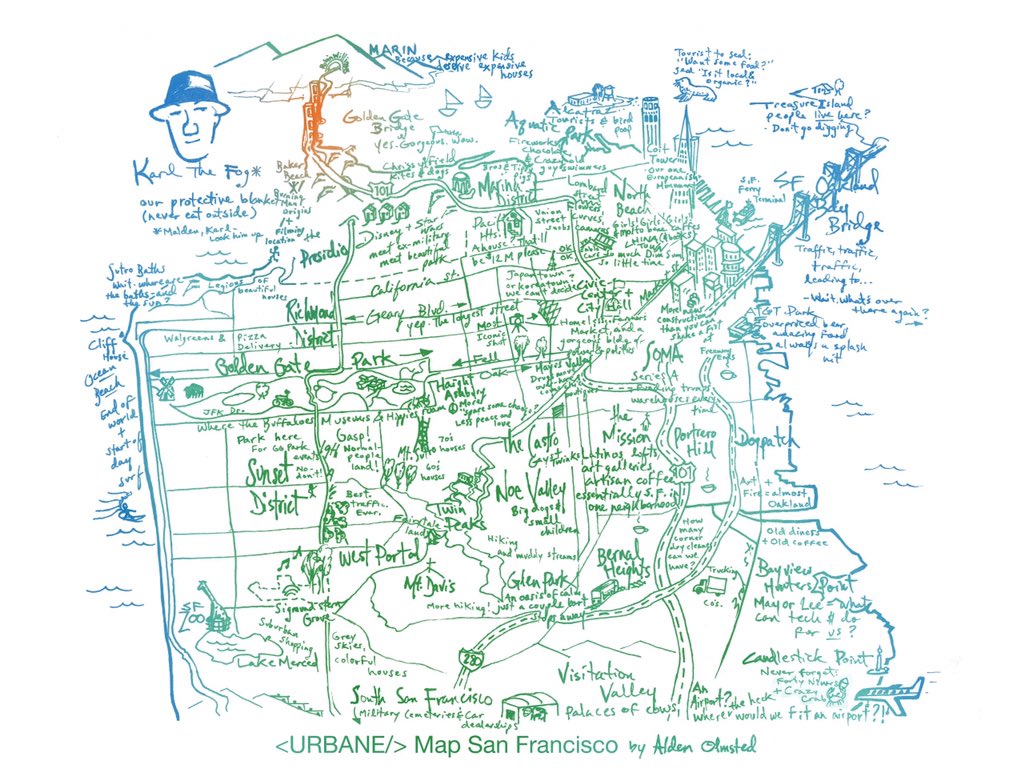 MARIN
Because expensive kids
deserve expensive
houses
Tourist to seal:
"Want some food?"
Seal "Is it local &
organic?"
Treasure Island
people live here?
- Don't go digging
Karl The Fog*
our protective blanket
(never eat outside)
*Malden, Karl -
Look him up
Golden Gate
Bridge
yes. Gorgeous. Wow.
Alcatraz
Tourists & bird
poop
Aquatic
Park
Fireworks
Chocolate
& Crazy old
guy swimmers
Coit
Tower
Our one
European-ish
Monument
S.F.
Ferry
Terminal
SF
Oakland
Bay
Bridge
Traffic, traffic,
traffic,
leading to...
- Wait. What's over
there again?
Baker
Beach
Burning
Man
Origins
+
Filming
location
Crissy Field
Kites & dogs
101
Marina
District
Lombard
Street
flowers
curves
North
Beach
Presidio
Disney + Star
Wars
meet ex-military
meet beautiful
park
Pacific
Hts.
A house -
be $12M please
Union
Street
Girls! Girls! Girls!
so much Dim Sum
so little time
Sutro Baths
Wait. where are
the baths - and
the sub?
Legions of
beautiful
houses
California
St.
Japantown -
or koreatown -
we can't decide
Civic
Center
City
Hall
Richmond
District
Geary Blvd.
yep. The longest street
Most
Iconic
Shot
Walgreens &
Pizza
Delivery
Cliff
House
Ocean
Beach
End of
world
+
start of
day
surf
Golden Gate
Park
Fell
Oak
Hayes Valley
More new
construction
than you can
shake a fist
at
AT&T Park
Overpriced beer
amazing food
always a splash
hit
SOMA
Freeway
Ends
JFK Dr.
Where the Buffaloes
Museums & Hippies
roam
Haight
Ashbury
Less peace and
love
warehouses every
time
Park here
For GG Park
events
No-
don't!
Gasp!
Normal
people
land!
70's
houses
60s
houses
Sunset
District
Best.
traffic.
Ever.
The Castro
Gays + twinks
the
Mission
Latinos, lofts,
art galleries
artisan coffee
essentially S.F. in
one neighborhood
Portrero
Hill
101
Dogpatch
Art +
Fire = almost
Oakland
Noe Valley
Big dogs &
small
children
Twin
Peaks
West Portal
Mt. Davis
More hiking!
Hiking
and muddy streams
Glen Park
An oasis of calm
just a couple bart
stops away
Bernal
Heights
How
many
corner
dry cleaners
can we
have?
Trucking
Co's.
Old diners
+ Old coffee
Bayview
Hunters Point
Mayor Lee = what
can tech $ do
for us?
SF
Zoo
Sigmund Stern
Grove
Suburban
Shopping
Lake Merced
Grey
skies,
colorful
houses
280
South San Francisco
Military cemeteries & Car
dealerships
Visitation
Valley
palaces of cows
Candlestick Point
Never forget:
Forty Niners
+ Crazy
Crab
An
Airport?! the heck
wherer would we fit an airport?!
<URBANE/> Map San Francisco by Alden Olmsted